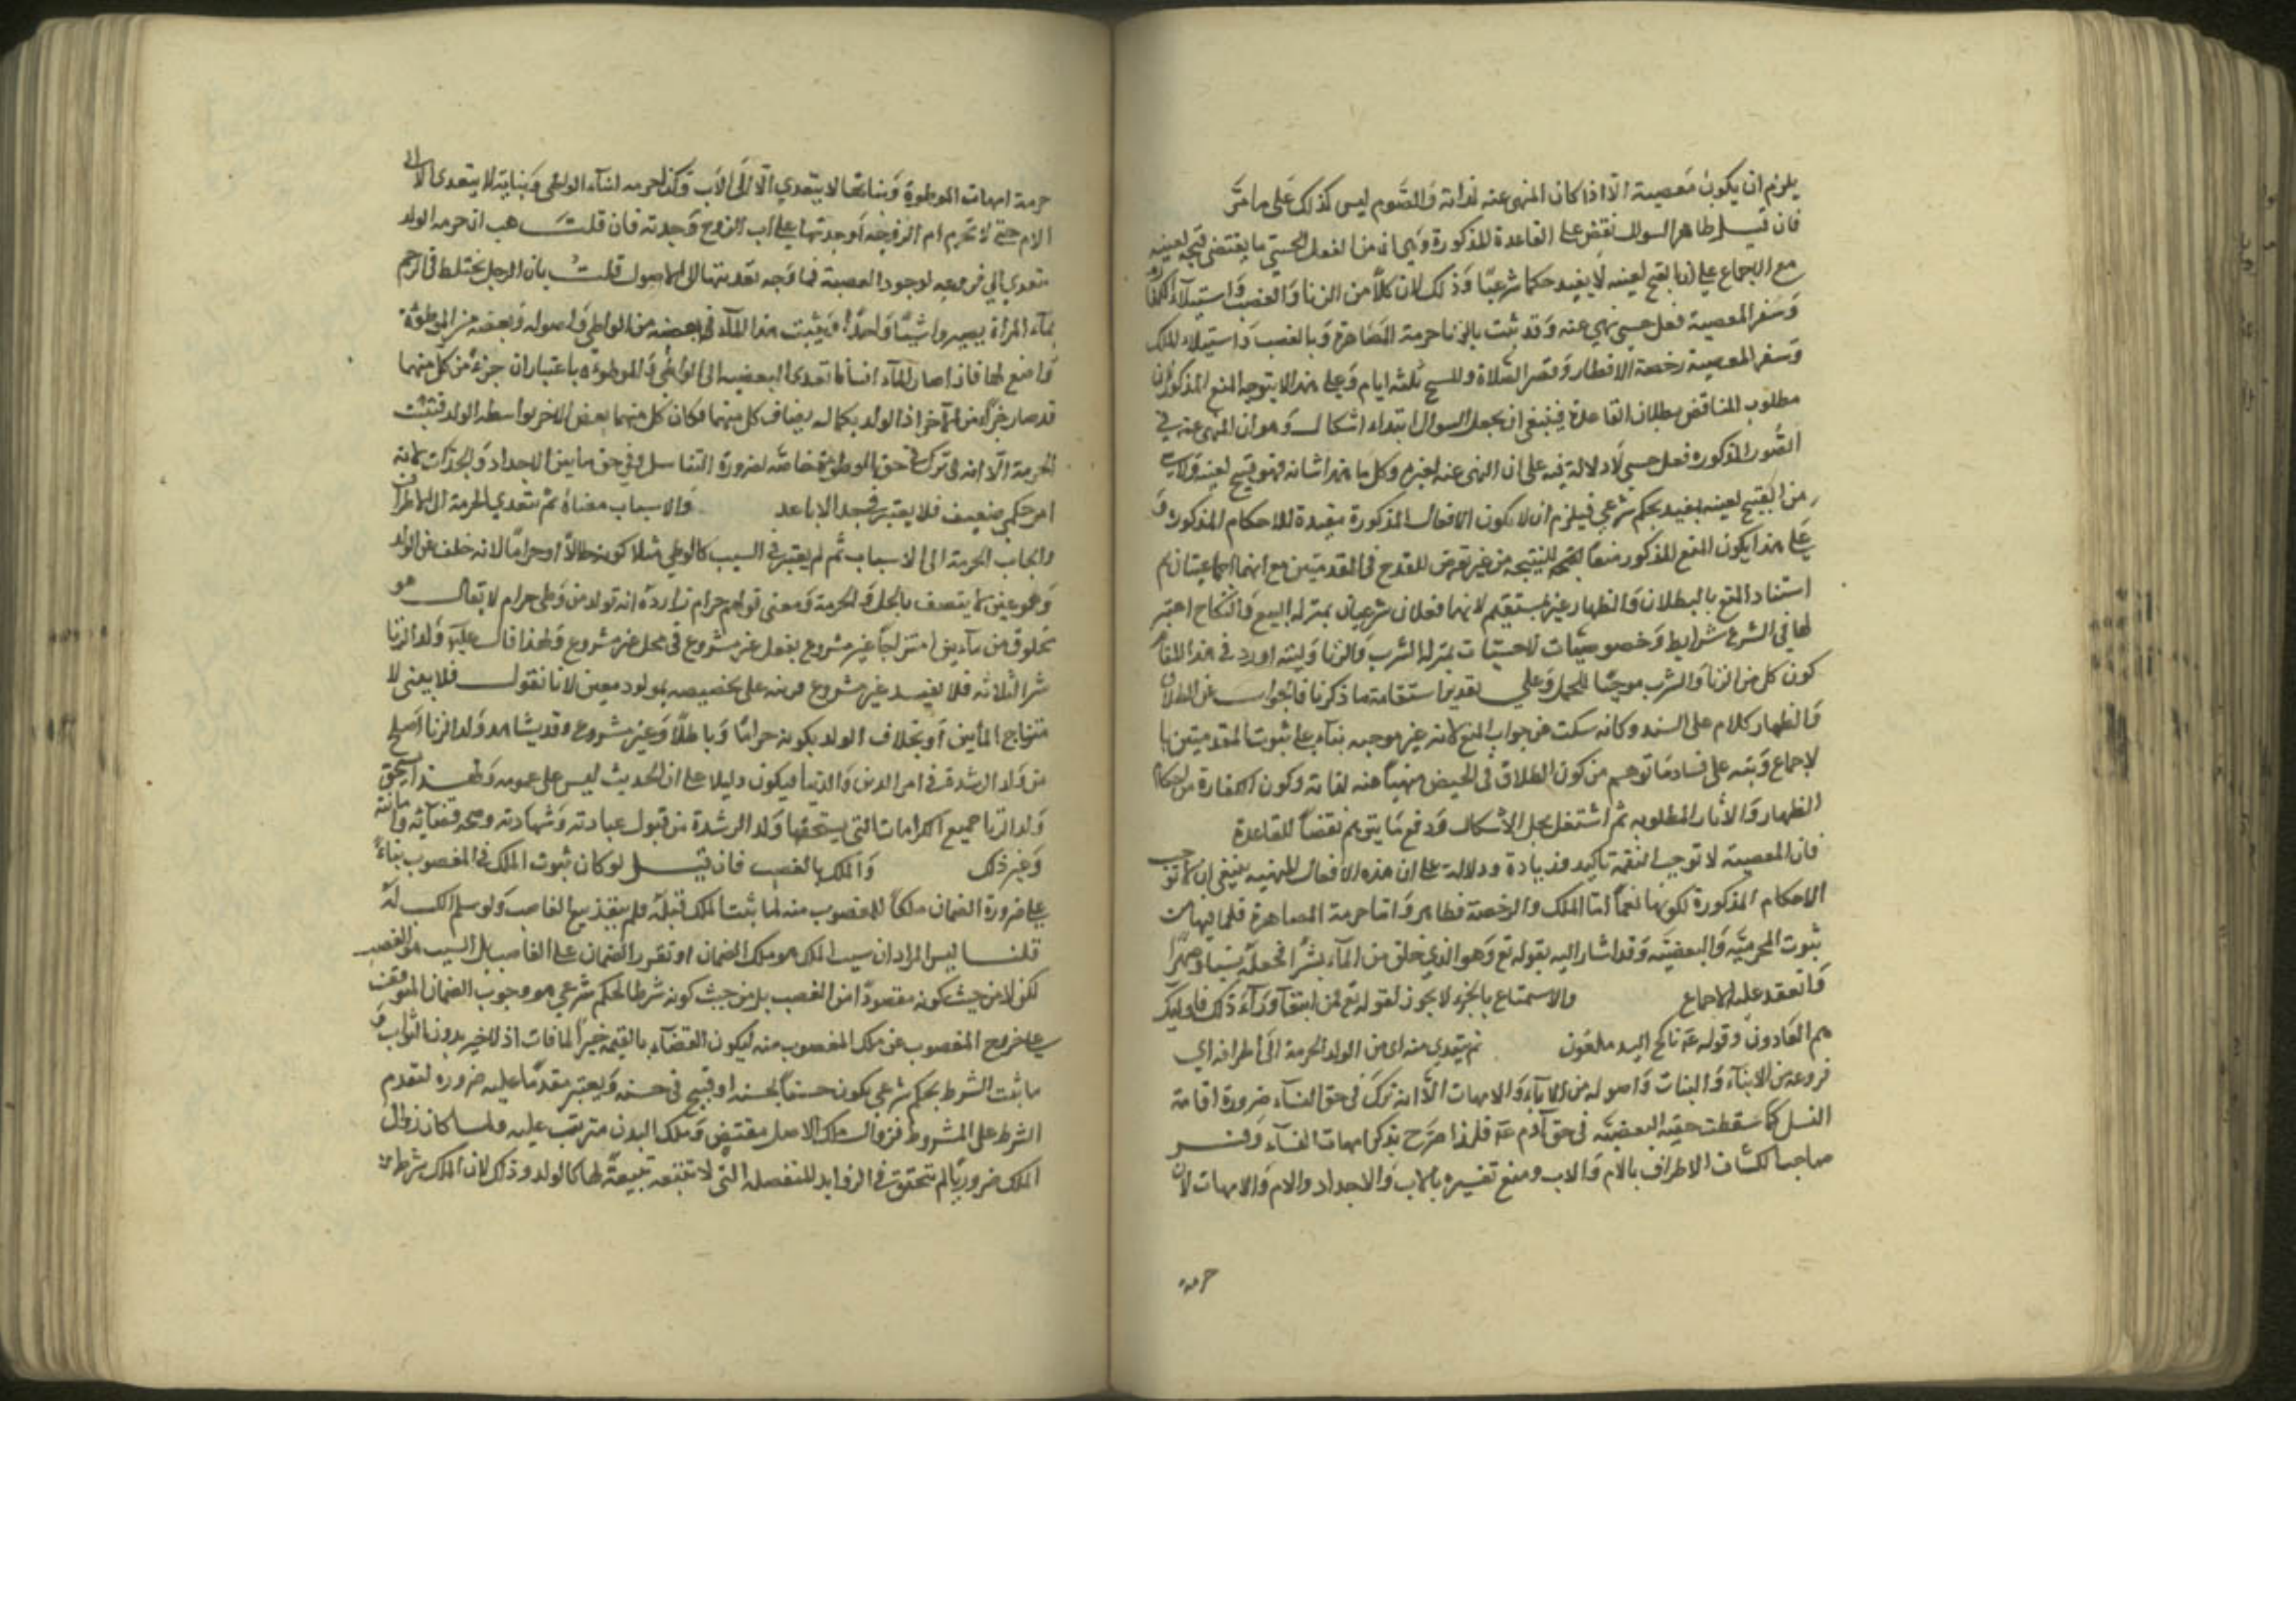 يلزم ان يكون معصية الا اذا كان المنهى عنه لذاته والصوم ليس كذلك على ما مر
فان قيل ظاهر السوال نقض على القاعدة المذكورة وهى ان من الفعل الحسي ما يقتضى قبحه لعينه
مع الاجماع على ان ما يقبح لعينه لا يفيد حكما شرعيا وذلك لان كلا من الزنا والغصب واستيلاء الكفار
وسفر المعصية فعل حسى نهى عنه وقد ثبت بالزنا حرمة المصاهرة وبالغصب واستيلاء الملك
وسفر المعصية رخصة الافطار وقصر الصلاة والمسح ثلثة ايام وعلى هذا لا يتوجه المنع المذكور لان
مطلوب المناقض بطلان القاعدة فينبغى ان يجعل السوال ابتداء اشكال وهو ان المنهى عنه في
الصور المذكوره فعل حسى لا دلالة فيه على ان النهى عنه لغيره وكل ما هذا شانه فهو قبيح لعينه ولا شي
من القبيح لعينه بمفيد بحكم شرعي فيلزم ان لا يكون الافعال المذكورة مفيدة للاحكام المذكوره و
على هذا يكون المنع المذكور منعا لصحة النتيجه من غير تعرض للقدح في المقدمتين مع انهما اجماعيتان ثم
استناد المنع بالبطلان والظهار غير مستقيم لانهما فعلان شرعيان بمنزله البيع والنكاح اعتبر
لها في الشرع شرايط وخصوصيات لا حسيات بمنزله الشرب والزنا وليته اورد في هذا المقام
كون كل من الزنا والشرب موجبا للحد وعلى تقدير استقامة ما ذكرنا فالجواب عن الطلاق
والظهار كلام على السند وكانه سكت عن جواب المنع لانه غير موجه بناء على ثبوت المقدمتين با
لاجماع ونبه على فساد ما توهم من كون الطلاق في الحيض منهيا عنه لذاته وكون الكفارة من احكام
الظهار والاثار المطلوبه ثم اشتغل بحل الاشكال ودفع ما يتوهم نقضا للقاعدة
فان المعصية لا توجب النعمة تاكيد وزيادة ودلالة على ان هذه الافعال المنهيه ينبغى ان لا توجب
الاحكام المذكورة لكونها نعما اما الملك والرخصة فظاهر واما حرمة المصاهرة فلما فيها من
ثبوت المحرمية والبعضية وقد اشار اليه بقوله تع وهو الذي خلق من الماء بشرا فجعله نسبا وصهرا
وانعقد عليه الاجماع والاستمتاع بالجزء لا يجوز لقوله تع فمن ابتغى وراء ذلك فاوليك
هم العادون وقوله عه ناكح اليد ملعون ثم يتعدى منه اى من الولد الحرمة الى اطرافه اي
فروعه من الابناء والبنات واصوله من الآباء والامهات الا انه ترك في حق النساء ضرورة اقامة
النسل كما سقطت حقيقة البعضيه في حق آدم عه فلذا صرح بذكر امهات النساء وفسر
صاحب الكشاف الاطراف بالام والاب ومنع تفسيره بالاب والاجداد والام والامهات لان
حرمة
حرمة امهات الموطوءة وبناتها لا يتعدى الا الى الاب وكذا حرمه اباء الواطى وبنايه لا يتعدى الا الى
الام حتى لا تحرم ام الزوجة او جدتها على اب الزوج وجدته فان قلت هب ان حرمه الولد
تتعدي الى فروعه لوجود البعضية فما وجه تعديتها الى الاصول قلت بان الرجل يختلط في الرحم
بماء المراة يصيروا شيئا واحدا ويثبت هذا الماء في بعضه من الواطى واصوله وبعضه من الموطوءة
واضع لها فاذا صار الماء انسانا تعدى البعضيه الى الواطى والموطوءه باعتبار ان جزء من كل منهما
قد صار جزءا من الآخر اذ الولد بكماله يضاف كل منهما فكان كل منهما بعض للاخر بواسطه الولد فتثبت
الحرمة الا انه ترك في حق الموطوءة خاصه لضرورة التناسل وفي حق ما بين الاجداد والجدات لانه
امر حكمى ضعيف فلا يعتبر في حد الاباعد والاسباب معناه ثم تتعدي الحرمة الى الاطراف
وايجاب الحرمة الى الاسباب ثم لم يعتبر في السبب كالوطي مثلا كونه حلالا او حراما لانه خلف عن الولد
وهو عين لا يتصف بالحل والحرمة ومعنى قولهم حرام زاده انه تولد من وطى حرام لا يقال هو
مخلوق من مآءين امتزاجا غير مشروع بفعل غير مشروع في محل غير مشروع ولهذا قال عليه ولد الزنا
شر الثلاثه فلا يفيد غير مشروع قرينه على تخصيصه بمولود معين لانا نقول فلا يعنى لا
متزاج المائين او بخلاف الولد بكونه حراما وباطلا وغير مشروع وقد يشاهد ولد الزنا اصلح
من ولد الرشدة في امر الدين والدنيا فيكون دليلا على ان الحديث ليس على عمومه ولهذا يستحق
ولد الزنا جميع الكرامات التى يستحقها ولد الرشدة من قبول عبادته وشهادته وصحه قضائه وامانته
وغير ذلك والملك بالغصب فان قيل لو كان ثبوت الملك في المغصوب بناء
على ضرورة الضمان ملكا للمغصوب منه لما ثبت الملك قبله فلم ينفذ بيع الغاصب ولو سلم الكسب له
قلنا ليس المراد ان سبب الملك هو ملك الضمان او تقرر الضمان على الغاصب بل السبب هو الغصب
لكن لا من حيث كونه مقصودا من الغصب بل من حيث كونه شرطا لحكم شرعي هو وجوب الضمان المتوقف
على خروج المغصوب عن ملك المغصوب منه ليكون القضاء بالقيمه جبرا لما فات اذ لا جبر بدون الفوات و
ما ثبت الشرط بحكم شرعى يكون حسنا بحسنه او قبيح في حسنه ويعتبر مقدما عليه ضروره لتقدم
الشرط على المشروط فزوال ملك الاصل مقتضى وملك البدن مترتب عليه ولما كان زوال
الملك ضروريا لم يتحقق في الزوايد المنفصله التى لا تتبعه تبعية لها كالولد وذلك لان الملك شرط